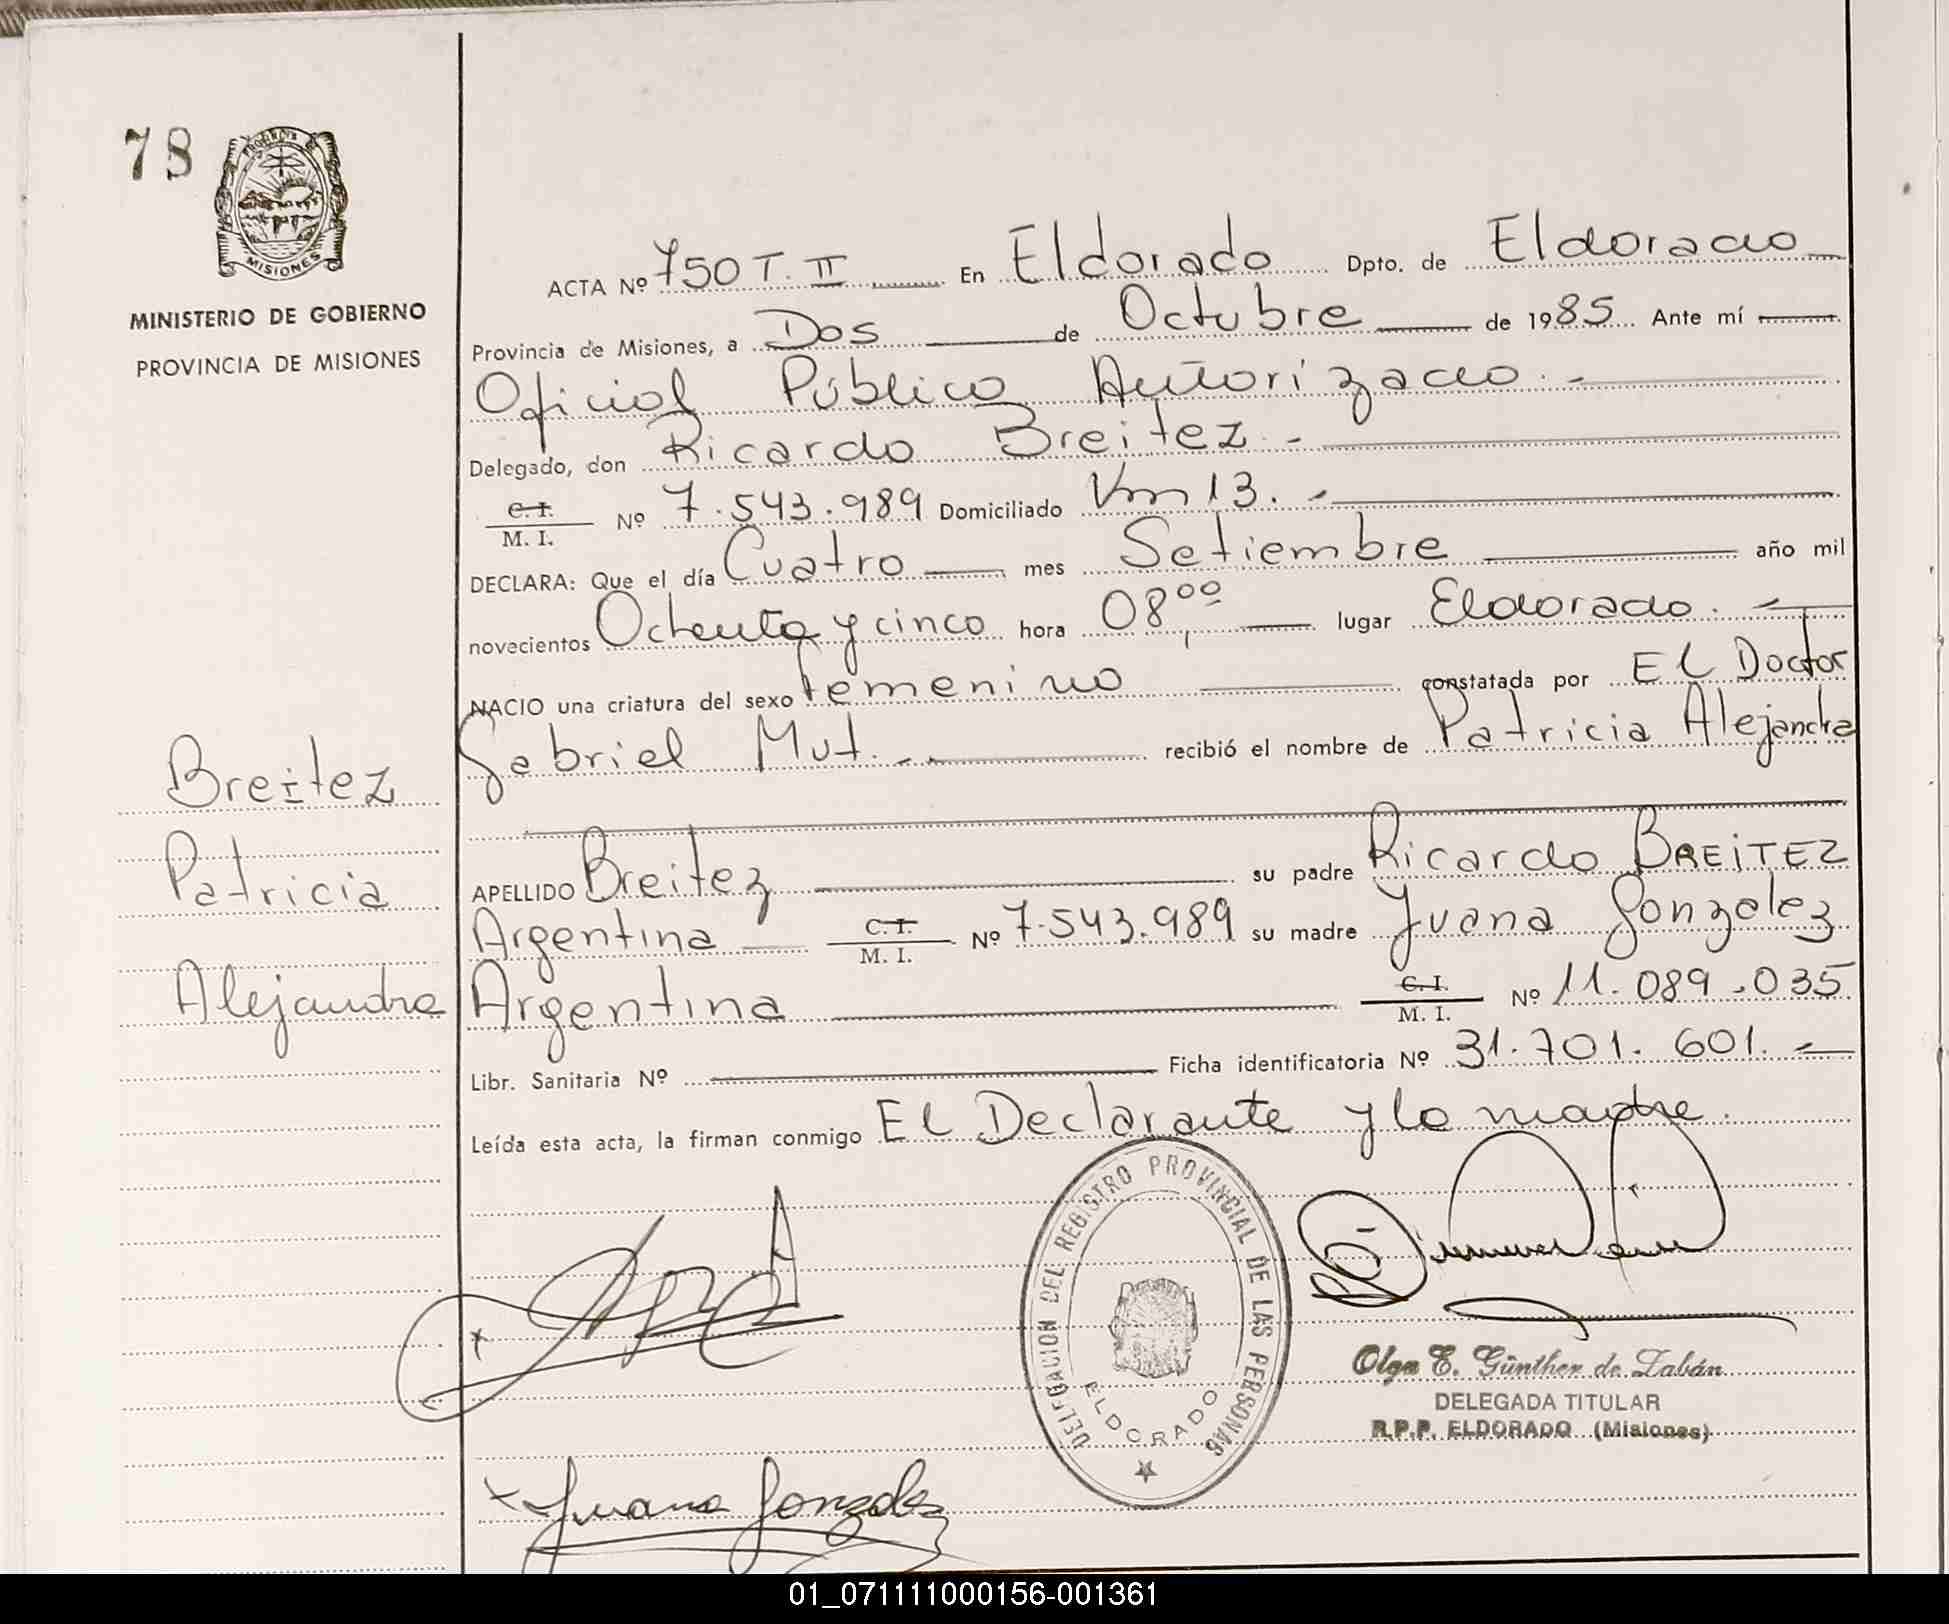 78
MISIONES
MINISTERIO DE GOBIERNO
PROVINCIA DE MISIONES
ACTA Nº 750 T. II En Eldorado Dpto. de Eldorado
Provincia de Misiones, a Dos de Octubre de 1985 Ante mí
Oficial Público Autorizado.-
Delegado, don Ricardo Breitez.-
C. I.
M. I. Nº 7.543.989 Domiciliado Km 13.-
DECLARA: Que el día Cuatro mes Setiembre año mil
novecientos Ochenta y cinco hora 08,00 lugar Eldorado.-
NACIO una criatura del sexo femenino constatada por El Doctor
Gabriel Mut.- recibió el nombre de Patricia Alejandra
Breitez
Patricia
Alejandra
APELLIDO Breitez su padre Ricardo BREITEZ
Argentina C. I. M. I. Nº 7.543.989 su madre Juana Gonzalez
Argentina C. I. M. I. Nº 11.089.035
Libr. Sanitaria Nº Ficha identificatoria Nº 31.701.601.-
Leída esta acta, la firman conmigo El Declarante y la madre.
DELEGACION DEL REGISTRO PROVINCIAL DE LAS PERSONAS
ELDORADO
Olga E. Günther de Zabán
DELEGADA TITULAR
R.P.P. ELDORADO (Misiones)
x Juana Gonzalez
01_071111000156-001361